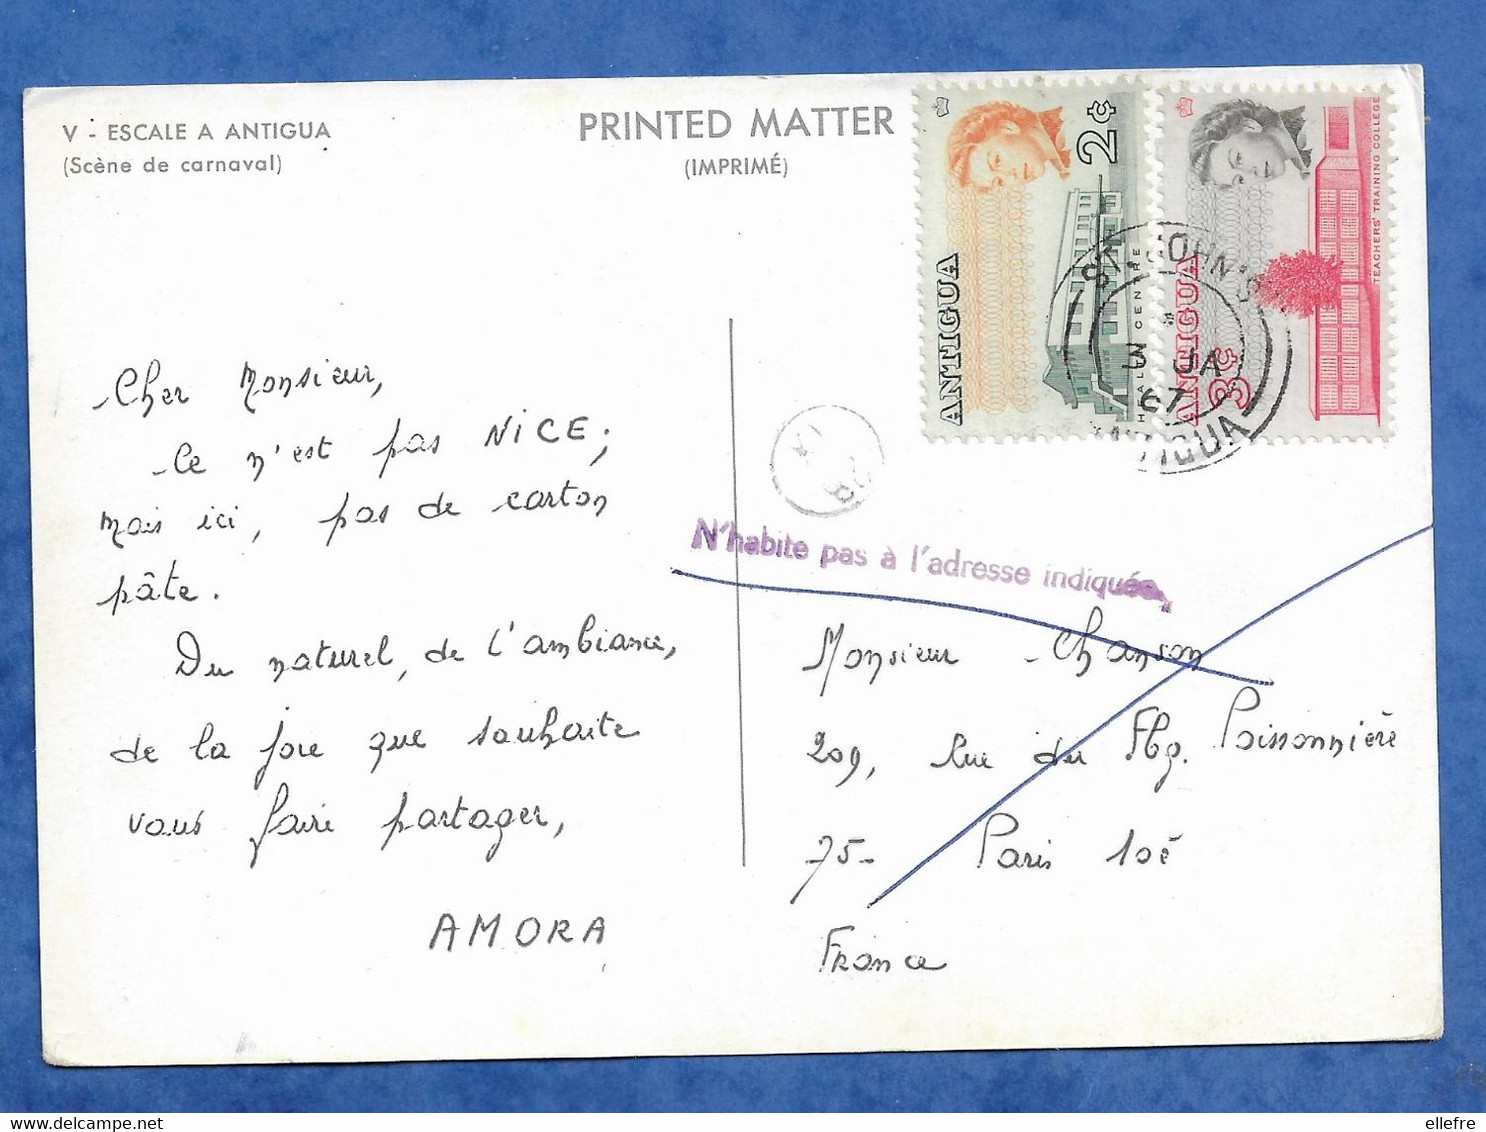 V - ESCALE A ANTIGUA
(Scène de carnaval)
PRINTED MATTER
(IMPRIMÉ)
2¢
ANTIGUA
HALL CENTRE
3¢
ANTIGUA
TEACHERS' TRAINING COLLEGE
ST. JOHN'S
3 JA
67
ANTIGUA
Cher Monsieur,
Ce n'est pas NICE;
mais ici, pas de carton
pâte.
Du naturel, de l'ambiance,
de la joie que souhaite
vous faire partager,
AMORA
N'habite pas à l'adresse indiquée
Monsieur Chanson
209, Rue du Fbg. Poissonnière
75- Paris 10è
France
ellefre